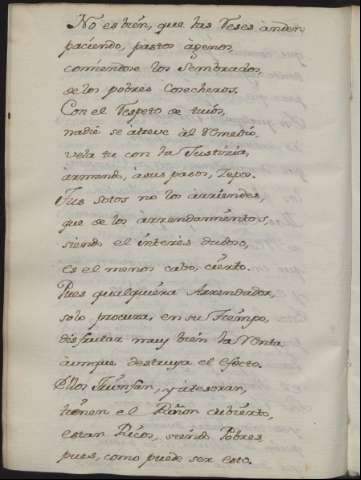 No es bién, que las Reses ànden
paciendo, pastos àgenos
comiendose los Sembrados,
de los pobres Cosecheros.
Con el Respeto de tuiòn,
nadié se àtreve àl remedio
vela tu con la Justizia,
àrmando, à sus pasos, Zepos.
Tus sotos no los àrriendes,
que de los àrrendamiéntos,
siendo el interès dudoso,
es el menos cabo, ciérto.
Pues qualquiéra Arrendador,
solo procura, en su Tiémpo,
disfrutar muy bién la Renta
àunque destruya el efecto.
Ellos Triùnfan, y atesoran,
tiénen el Riñon cubiérto,
estan Ricos, siéndo Pobres
pues, como puede ser esto.